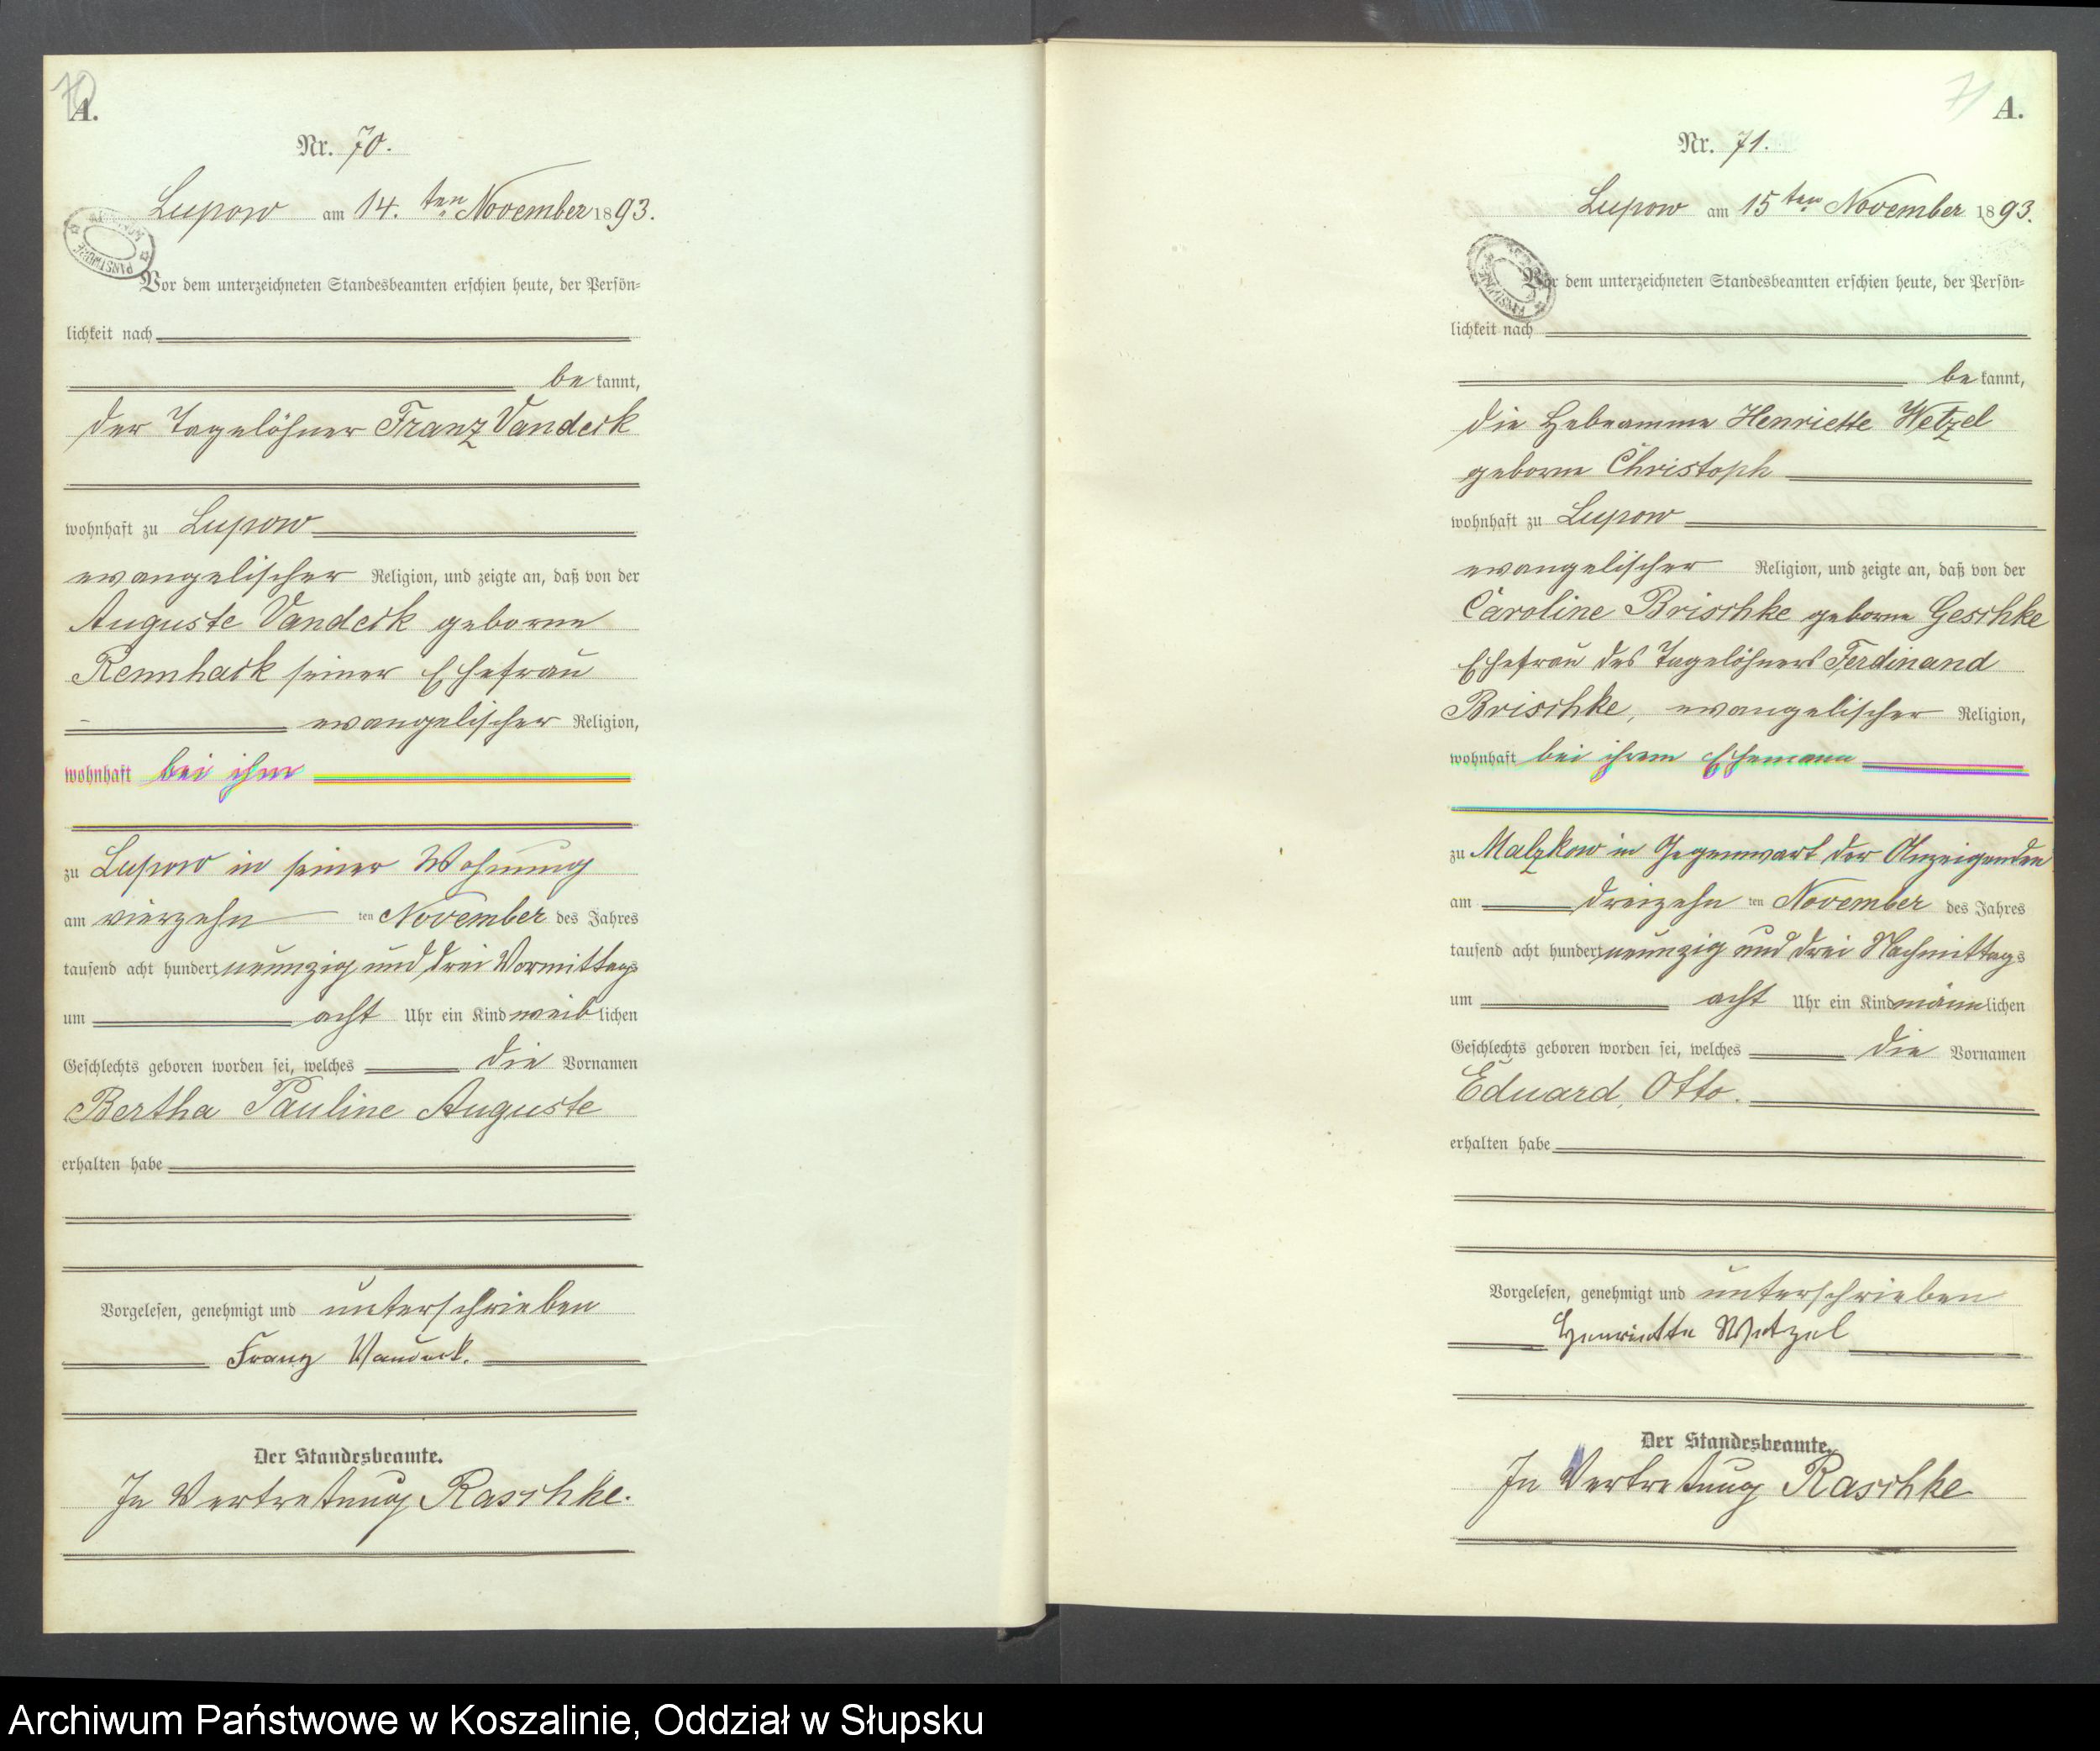 A.
Nr. 70.
Lupow am 14. ten November 1893.
Vor dem unterzeichneten Standesbeamten erschien heute, der Persön-
lichkeit nach
bekannt,
der Tagelöhner Franz Vandeck
wohnhaft zu Lupow
evangelischer Religion, und zeigte an, daß von der
Auguste Vandeck geborne
Rennhack seiner Ehefrau
evangelischer Religion,
wohnhaft bei ihm
zu Lupow in seiner Wohnung
am vierzehn ten November des Jahres
tausend acht hundert neunzig und drei Vormittags
um acht Uhr ein Kind weiblichen
Geschlechts geboren worden sei, welches die Vornamen
Bertha Pauline Auguste
erhalten habe
Vorgelesen, genehmigt und unterschrieben
Franz Vandeck.
Der Standesbeamte.
In Vertretung Raschke.
71 A.
Nr. 71.
Lupow am 15 ten November 1893.
Vor dem unterzeichneten Standesbeamten erschien heute, der Persön-
lichkeit nach
bekannt,
die Hebeamme Henriette Wetzel
geborne Christoph
wohnhaft zu Lupow
evangelischer Religion, und zeigte an, daß von der
Caroline Brischke geborne Geschke
Ehefrau des Tagelöhners Ferdinand
Brischke, evangelischer Religion,
wohnhaft bei ihrem Ehemann
zu Malzkow in Gegenwart der Anzeigenden
am dreizehn ten November des Jahres
tausend acht hundert neunzig und drei Nachmittags
um acht Uhr ein Kind männlichen
Geschlechts geboren worden sei, welches die Vornamen
Eduard, Otto.
erhalten habe
Vorgelesen, genehmigt und unterschrieben
Henriette Wetzel
Der Standesbeamte.
In Vertretung Raschke
Archiwum Państwowe w Koszalinie, Oddział w Słupsku